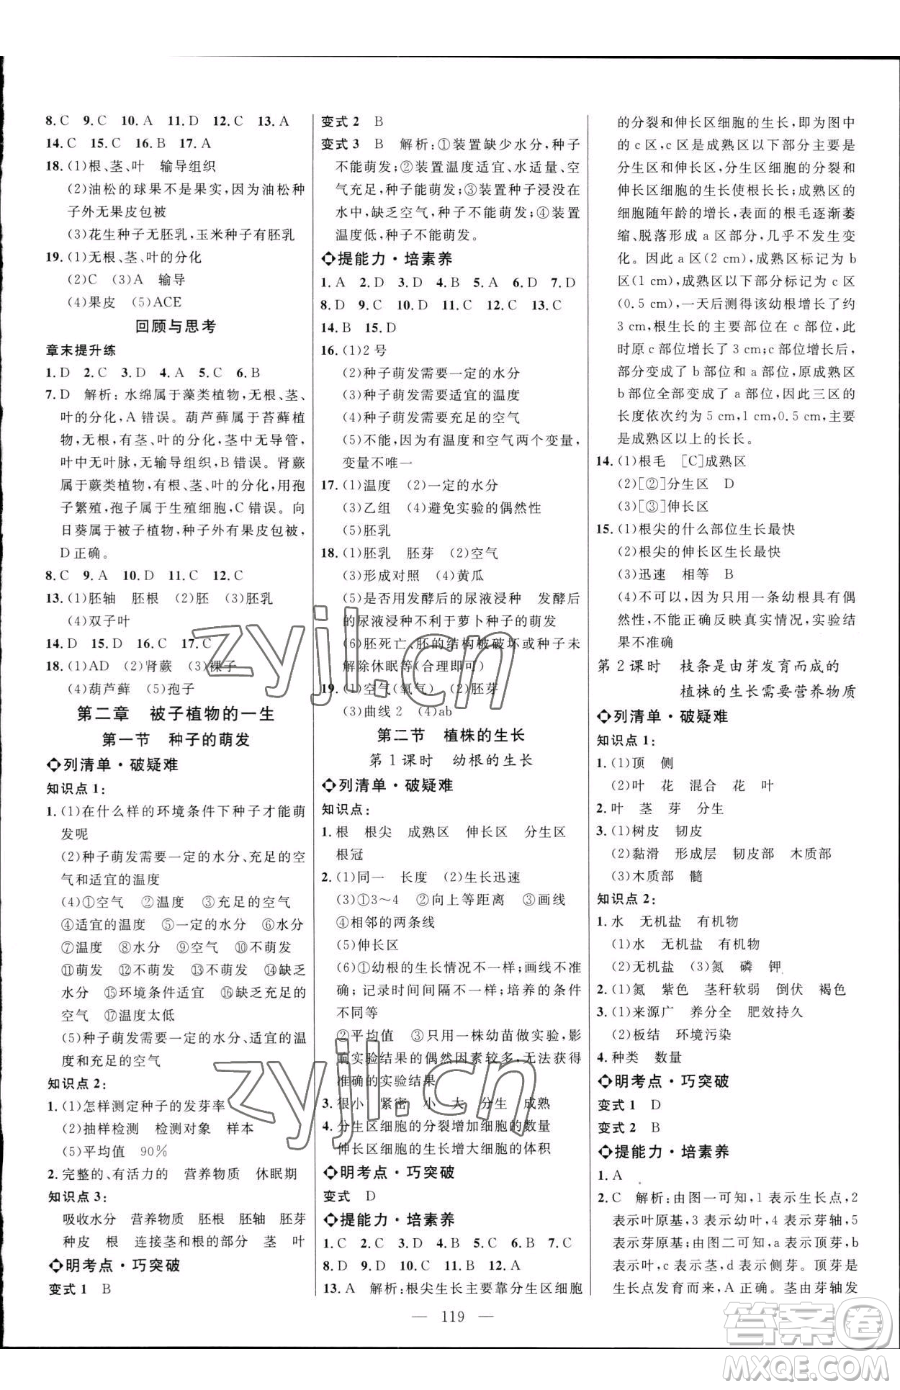 8. C　9. C　10. A　11. D　12. C　13. A
14. C　15. C　16. B　17. A
18. (1)根、茎、叶　输导组织
(2)油松的球果不是果实,因为油松种
子外无果皮包被
(3)花生种子无胚乳,玉米种子有胚乳
19. (1)无根、茎、叶的分化
(2)C　(3)A　输导
(4)果皮　(5)ACE
回顾与思考
章末提升练
1. D　2. C　3. D　4. A　5. C　6. B
7. D　解析:水绵属于藻类植物,无根、茎、
叶的分化,A 错误。葫芦藓属于苔藓植
物,无根、有茎、叶的分化,茎中无导管,
叶中无叶脉,无输导组织,B 错误。肾蕨
属于蕨类植物,有根、茎、叶的分化,用孢
子繁殖,孢子属于生殖细胞,C 错误。向
日葵属于被子植物,种子外有果皮包被,
D 正确。
8. C　9. A　10. D　11. C　12. C
13. (1)胚轴　胚根　(2)胚　(3)胚乳
(4)双子叶
14. D　15. D　16. C　17. C
18. (1)AD　(2)肾蕨　(3)裸子
(4)葫芦藓　(5)孢子
第二章　被子植物的一生
第一节　种子的萌发
列清单·破疑难
知识点 1:
1. (1)在什么样的环境条件下种子才能萌
发呢
(2)种子萌发需要一定的水分、充足的空
气和适宜的温度
(4)①空气　②适宜　③充足的空气
④适宜的温度　⑤适宜　⑥一定的水分
⑦温度　⑧水分　⑨空气　⑩不萌发
⑪萌发　⑫不萌发　⑬不萌发　⑭缺乏
水分　⑮环境条件适宜　⑯缺乏
空气　⑰温度太低
(5)种子萌发需要一定的水分、适宜的温
度和充足的空气
知识点 2:
1. (1)怎样测定种子的发芽率
(2)抽样检测　检测对象　样本
(5)平均值　90%
2. 完整的、有活力的　营养物质　休眠期
知识点 3:
吸收水分　营养物质　胚根　胚轴　胚芽
种皮　根　连接茎和根的部分　茎　叶
明考点·巧突破
变式 1　B
变式 2　B
变式 3　B　解析:①装置缺少水分,种子
不能萌发;②装置温度适宜、水适量、空
气充足,种子能萌发;③装置种子浸没在
水中,缺乏空气,种子不能萌发;④装置
温度低,种子不能萌发。
提能力·培素养
1. A　2. D　3. D　4. C　5. C　6. A　7. B
8. D　9. D　10. C　11. B　12. C　13. D
14. B　15. D
16. (1)2 号
(2)种子萌发需要一定的水分
(3)种子萌发需要适宜的温度
(4)种子萌发需要充足的空气
(5)不能,因为有温度和空气两个变量,
变量不唯一
17. (1)温度　(2)一定的水分
(3)乙组　(4)避免实验的偶然性
(5)胚乳
18. (1)胚乳　胚芽　(2)空气
(3)形成对照　(4)黄瓜
(5)是否用发酵后的尿液浸种　发酵后
的尿液浸种不利于萝卜种子的萌发
(6)胚死亡、胚的结构被破坏或种子未
解除休眠等(合理即可)
19. (1)空气(氧气)　(2)胚芽
(3)曲线 2　(4)ab
第二节　植株的生长
第 1 课时　幼根的生长
列清单·破疑难
知识点:
1. 根　根尖　成熟区　伸长区　分生区
根冠
2. (1)同一　长度　(2)生长迅速
(3)①3～4　②向上等距离　③画线
④相邻的两条线
(5)伸长区
(6)①幼根的生长情况不一样;画线不一
样;记录时间间隔不一样;培养的条件
不同等
②平均值　③只用一株幼苗做实验,影
响实验结果的偶然因素太多,无法得出准
确的实验结果
3. 很小　紧密　小　大　分生　成熟
4. 分生区细胞的分裂增加细胞的数量
伸长区细胞的生长增大细胞的体积
明考点·巧突破
变式　D
提能力·培素养
1. C　2. C　3. A　4. C　5. B　6. D　7. C
8. B　9. C　10. B　11. D　12. A
13. A　解析:根尖生长主要靠分生区细胞
的分裂和伸长区细胞的生长,因为图中
的 c 区,c 区是成熟区以下部分主要是
分生区和伸长区,分生区细胞的分裂和
伸长区细胞的生长使根长长;成熟区的
细胞随年龄的增长,表面的根毛逐渐萎
缩、脱落形成 a 区部分,几乎不发生变
化。因此 a 区(1 cm),成熟区标记为 b
区(1 cm),成熟区以下部分标记为 c 区
(0.5 cm),一天后测得该幼根增长了约
3 cm,根生长的主要部位在 c 部位,此
时原 c 部位增长了 3 cm,同时原 c 部位
部分变成了 b 部位和 a 部位,而原来的
b 部位全部变成了 a 部位,因此三区的
长度依次约为 5 cm,1 cm,0.5 cm,主要
是成熟区以上的长长。
14. (1)根毛　[C]成熟区
(2)[②]分生区　D
(3)[③]伸长区
15. (1)根尖的什么部位生长最快
(2)根尖的伸长区生长最快
(3)迅速　相等　B
(4)不可以,因为只用一条幼根具有偶
然性,实验次数太少且没有对照,实验结
果不准确
第 2 课时　枝条是由芽发育而成的
植株的生长需要营养物质
列清单·破疑难
知识点 1:
1. (1)顶　侧
(2)叶　花　混合　花　叶
2. 叶　茎　芽　分生
3. (1)树皮　韧皮
(2)黏滑　形成层　韧皮部　木质部
(3)木质部　髓
知识点 2:
1. 水　无机盐　有机物
(1)水　无机盐　有机物
(2)无机盐　(3)氮　磷　钾
2. 氮　紫色　茎秆软弱　倒伏　褐色
3. (1)来源广　养分全　肥效持久
(2)板结　环境污染
4. 种类　数量
明考点·巧突破
变式 1　D
变式 2　B
提能力·培素养
1. A
2. C　解析:由图一可知,1 表示生长点,2
表示叶原基,3 表示幼叶,4 表示芽轴,5
表示芽原基;由图二可知,a 表示顶芽,b
表示叶,c 表示茎,d 表示侧芽。顶芽是由
生长点发育而来,A 正确。茎由芽轴发
119